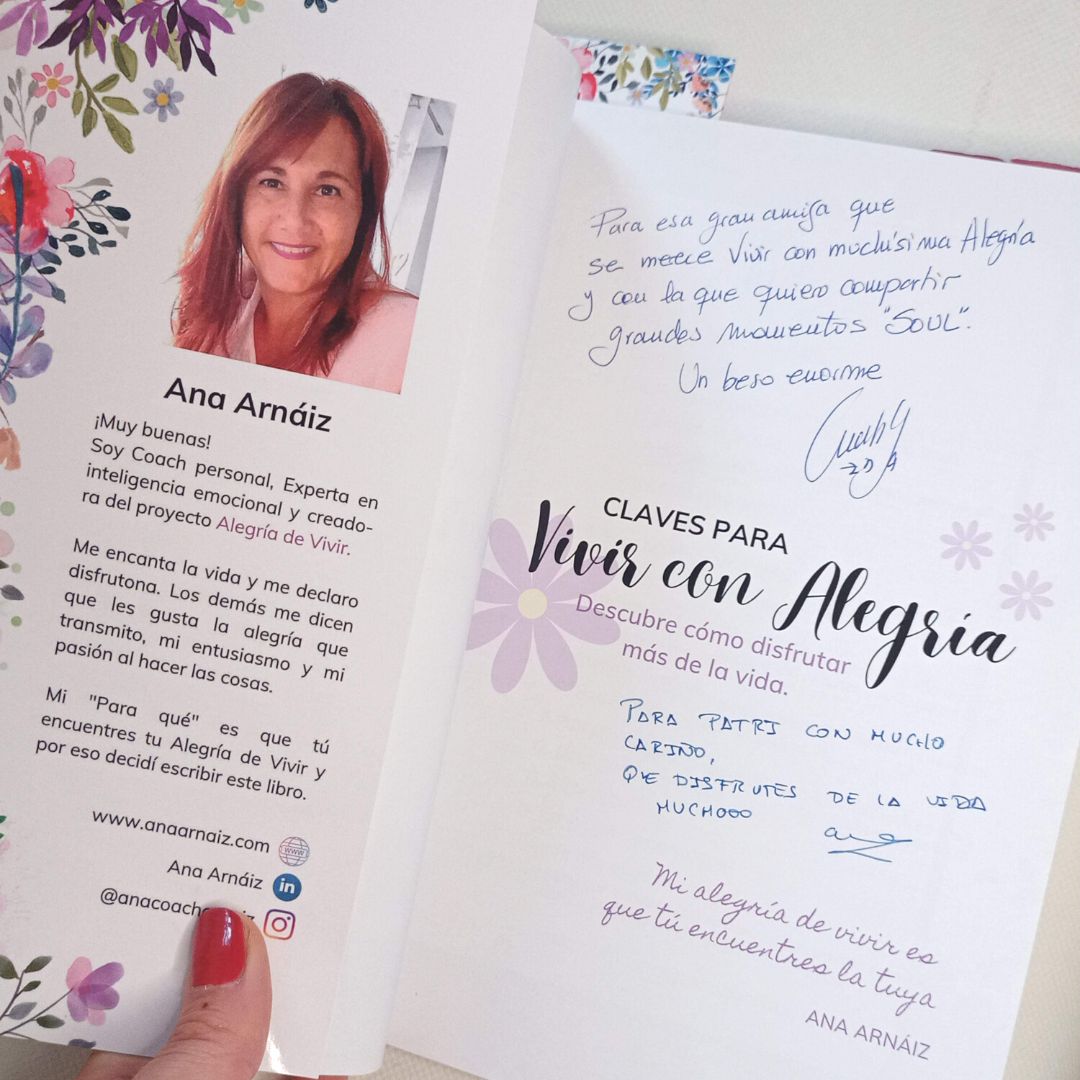 Ana Arnáiz
¡Muy buenas!
Soy Coach personal, Experta en
inteligencia emocional y creado-
ra del proyecto Alegría de Vivir.
Me encanta la vida y me declaro
disfrutona. Los demás me dicen
que les gusta la alegría que
transmito, mi entusiasmo y mi
pasión al hacer las cosas.
Mi "Para qué" es que tú
encuentres tu Alegría de Vivir y
por eso decidí escribir este libro.
www.anaarnaiz.com
www
Ana Arnáiz
in
Para esa gran amiga que
se merece Vivir con muchísima Alegría
y con la que quiero compartir
grandes momentos "SOUL".
Un beso enorme
CLAVES PARA
Vivir con Alegría
Descubre cómo disfrutar
más de la vida.
PARA PATRI CON MUCHO
CARIÑO,
QUE DISFRUTES DE LA VIDA
MUCHOOO
Mi alegría de vivir es
que tú encuentres la tuya
ANA ARNÁIZ